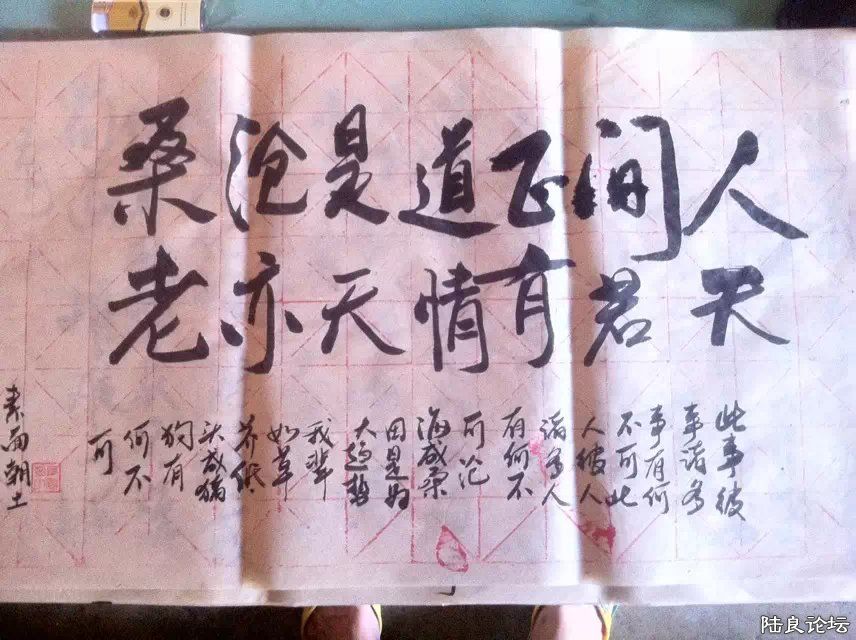 人间正道是沧桑
天若有情天亦老
此事彼
事诸多
事有何
不可此
人彼人
诸多人
有何不
可沧
海成桑
田是为
大趋势
我辈
如草
芥
头成
狗有
何不
可
素面朝土
陆良论坛